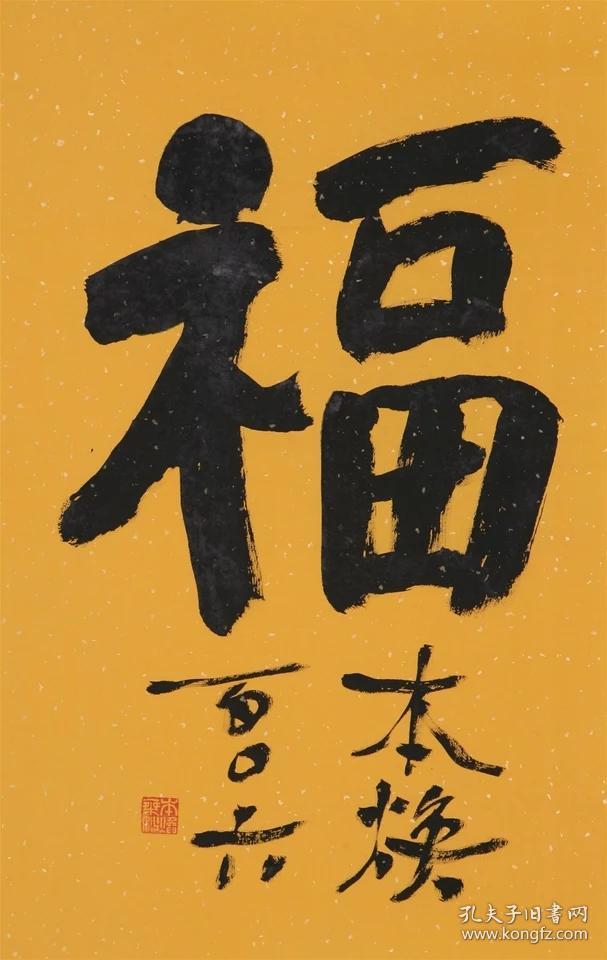 福
本焕
百〇六
孔夫子旧書网
www.kongfz.com